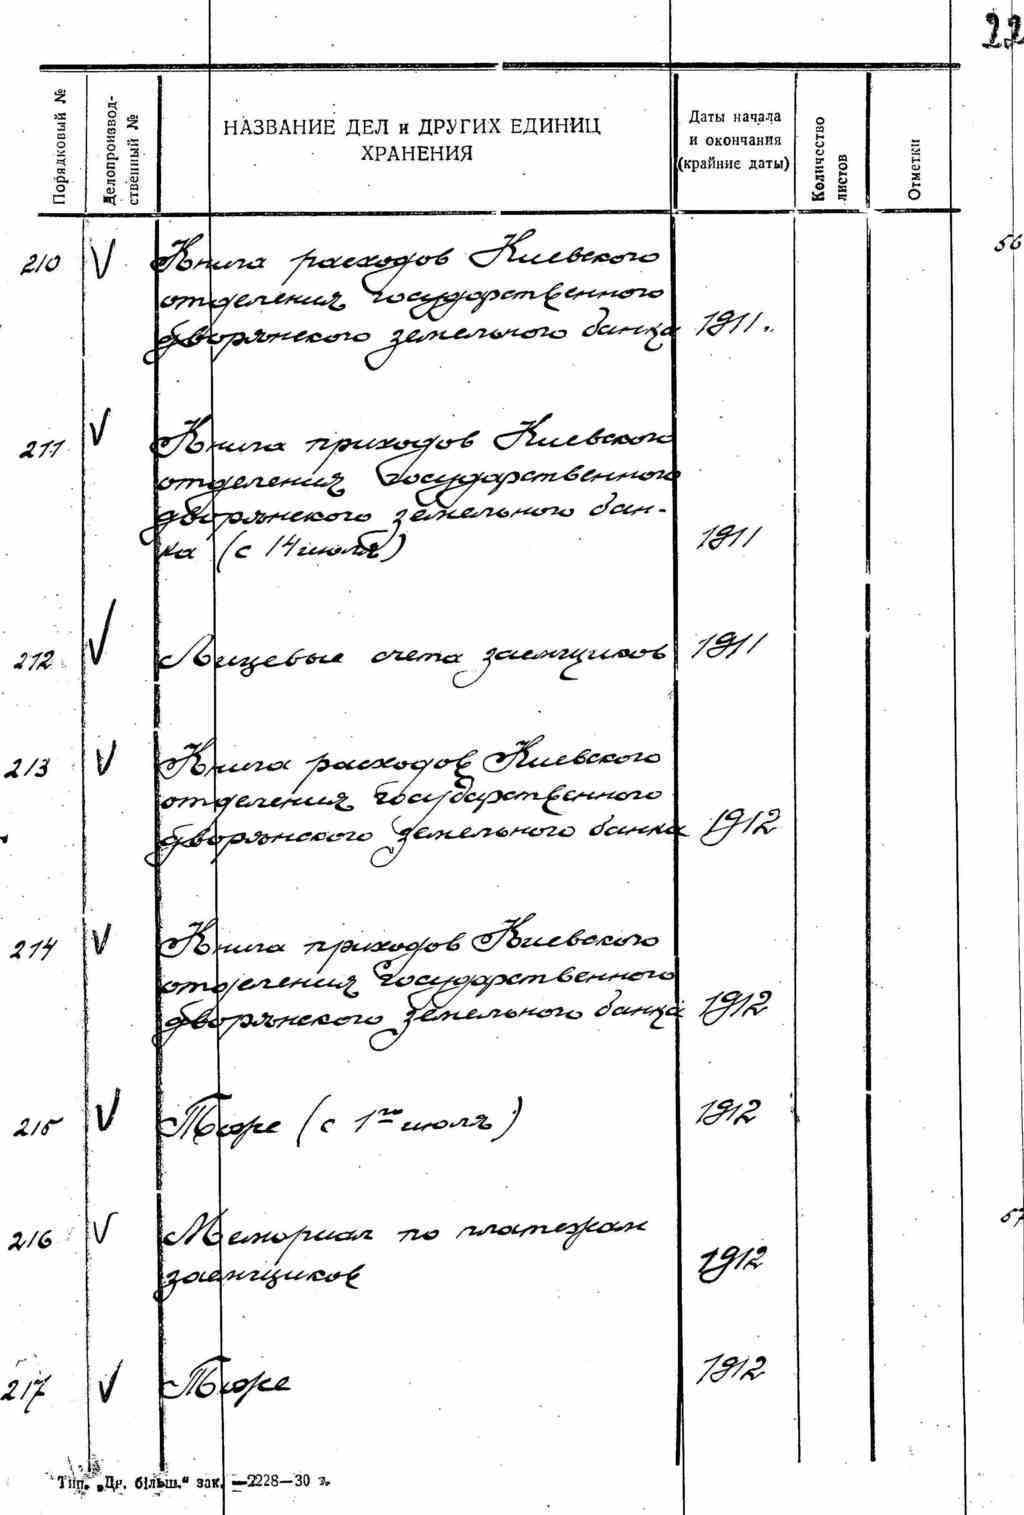 22
Порядковый №
Делопроизвод-
ственный №
НАЗВАНИЕ ДЕЛ и ДРУГИХ ЕДИНИЦ
ХРАНЕНИЯ
Даты начала
и окончания
(крайние даты)
Количество
листов
Отметки
56
210 V Книга расходов Киевского
отделения государственного
дворянского земельного банка 1911.
211 V Книга приходов Киевского
отделения государственного
дворянского земельного бан-
ка (с 14 июля) 1911
212 V Лицевые счета заемщиков 1911
213 V Книга расходов Киевского
отделения государственного
дворянского земельного банка 1912
214 V Книга приходов Киевского
отделения государственного
дворянского земельного банка 1912
215 V Тоже (с 1го июля) 1912
216 V Мемориал по платежам
заемщиков 1912
57
217 V Тоже 1912
Тип. „Др. більш.“ зак. —2228—30 т.